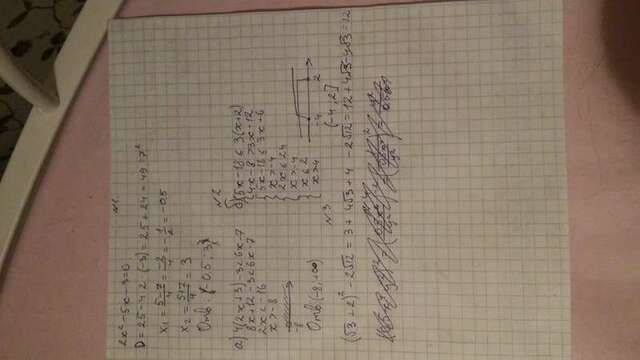 №1.
2x² - 5x - 3 = 0
D = 25 - 4·2·(-3) = 25 + 24 = 49 = 7²
x₁ = (5-7)/4 = -2/4 = -1/2 = -0,5
x₂ = (5+7)/4 = 3
Отв: -0,5; 3
№2
а) 4(2x+3) - 3 < 6x - 7
8x + 12 - 3 < 6x - 7
2x < -16
x > -8
-8
Отв: (-8, +∞)
б) 5x - 18 ≤ 3(x+2)
4x - 8 > 3x - 12
5x - 18 ≤ 3x + 6
x > -4
2x ≤ 24
x > -4
x ≤ 2
x > 4
-4 2
(-4, 2]
№3
(√3 + 2)² - 2√12 = 3 + 4√3 + 4 - 2√12 = 12 + 4√3 - 4√3 = 12